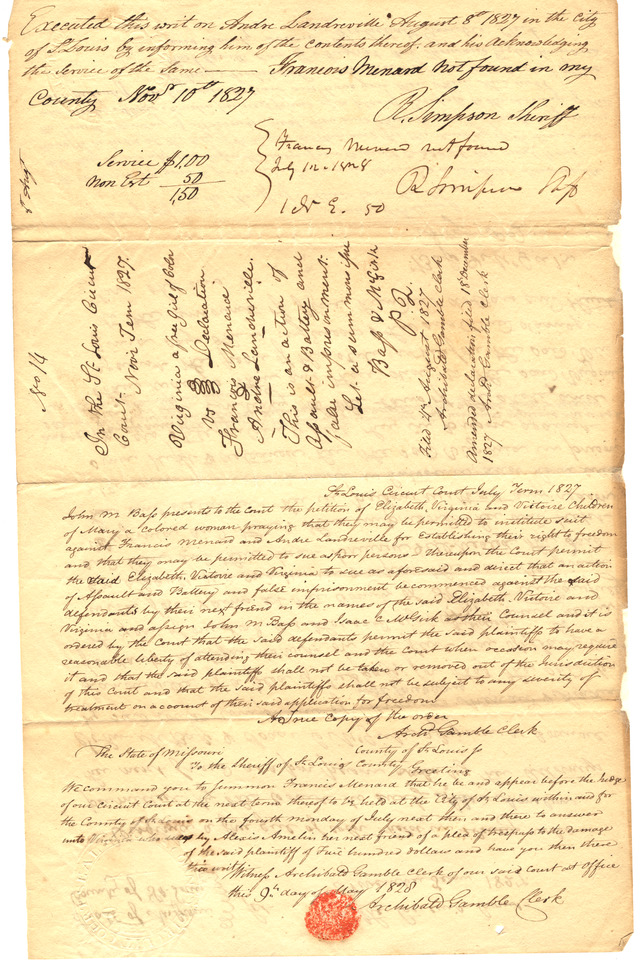 Executed this writ on Andre Landreville August 8th 1827 in the city
of St Louis by informing him of the contents thereof, and his Acknowledging
the Service of the Same — Francois Menard not found in my
County Novr 10th 1827
R. Simpson Sheriff
Service $1,00
Non Est 50
1,50
Francis Menard not found
July 1828
R Simpson Shff
1 N E. 50
8 Augt
No 14
In the St Louis Circuit
Court Novr Term 1827.
Virginia a free girl of Color
vs Declaration
Francois Menard
Andre Landreville.
This is an action of
Assault & Battery and
false imprisonment.
Let a summons issue
Bass & McGirk
P. Q.
Filed 4th August 1827
Archibald Gamble Clerk
Amended declaration filed 18 December
1827 Archd Gamble Clerk
St Louis Circuit Court July Term 1827
John M Bass presents to the Court the petition of Elizabeth, Virginia and Victoire Children
of Mary a colored woman praying that they may be permitted to institute suit
against Francis Menard and Andre Landreville for establishing their right to freedom
and that they may be permitted to sue as poor persons thereupon the Court permit
the said Elizabeth, Victoire and Virginia to sue as aforesaid and direct that an action
of Assault and Battery and false imprisonment be commenced against the said
defendants by their next friend in the names of the said Elizabeth, Victoire and
Virginia and assign John M Bass and Isaac C McGirk as their Counsel and it is
ordered by the Court that the said defendants permit the said plaintiffs to have a
reasonable liberty of attending their counsel and the Court when occasion may require
it and that the said plaintiffs shall not be taken or removed out of the Jurisdiction
of this Court and that the said plaintiffs shall not be subject to any severity of
treatment on account of their said application for freedom
A true copy of the order
Archd Gamble Clerk
The State of Missouri County of St Louis
To the Sheriff of St Louis County Greeting
We command you to summon Francis Menard that he be and appear before the Judge
of our circuit Court at the next term thereof to be held at the City of St Louis within and for
the County of St Louis on the fourth monday of July next then and there to answer
unto Virginia who sues by Alexis Amelin her next friend of a plea of trespass to the damage
of the said plaintiff of Five hundred dollars and have you then there
this writ
Witness Archibald Gamble Clerk of our said court at office
this 9th day of May 1828
Archibald Gamble Clerk